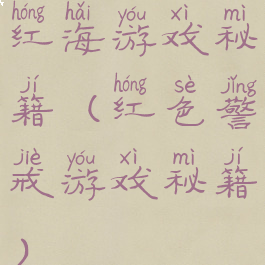 hóng hǎi yóu xì mì
红海游戏秘
jí hóng sè jǐng
籍（红色警
jiè yóu xì mì jí
戒游戏秘籍
）